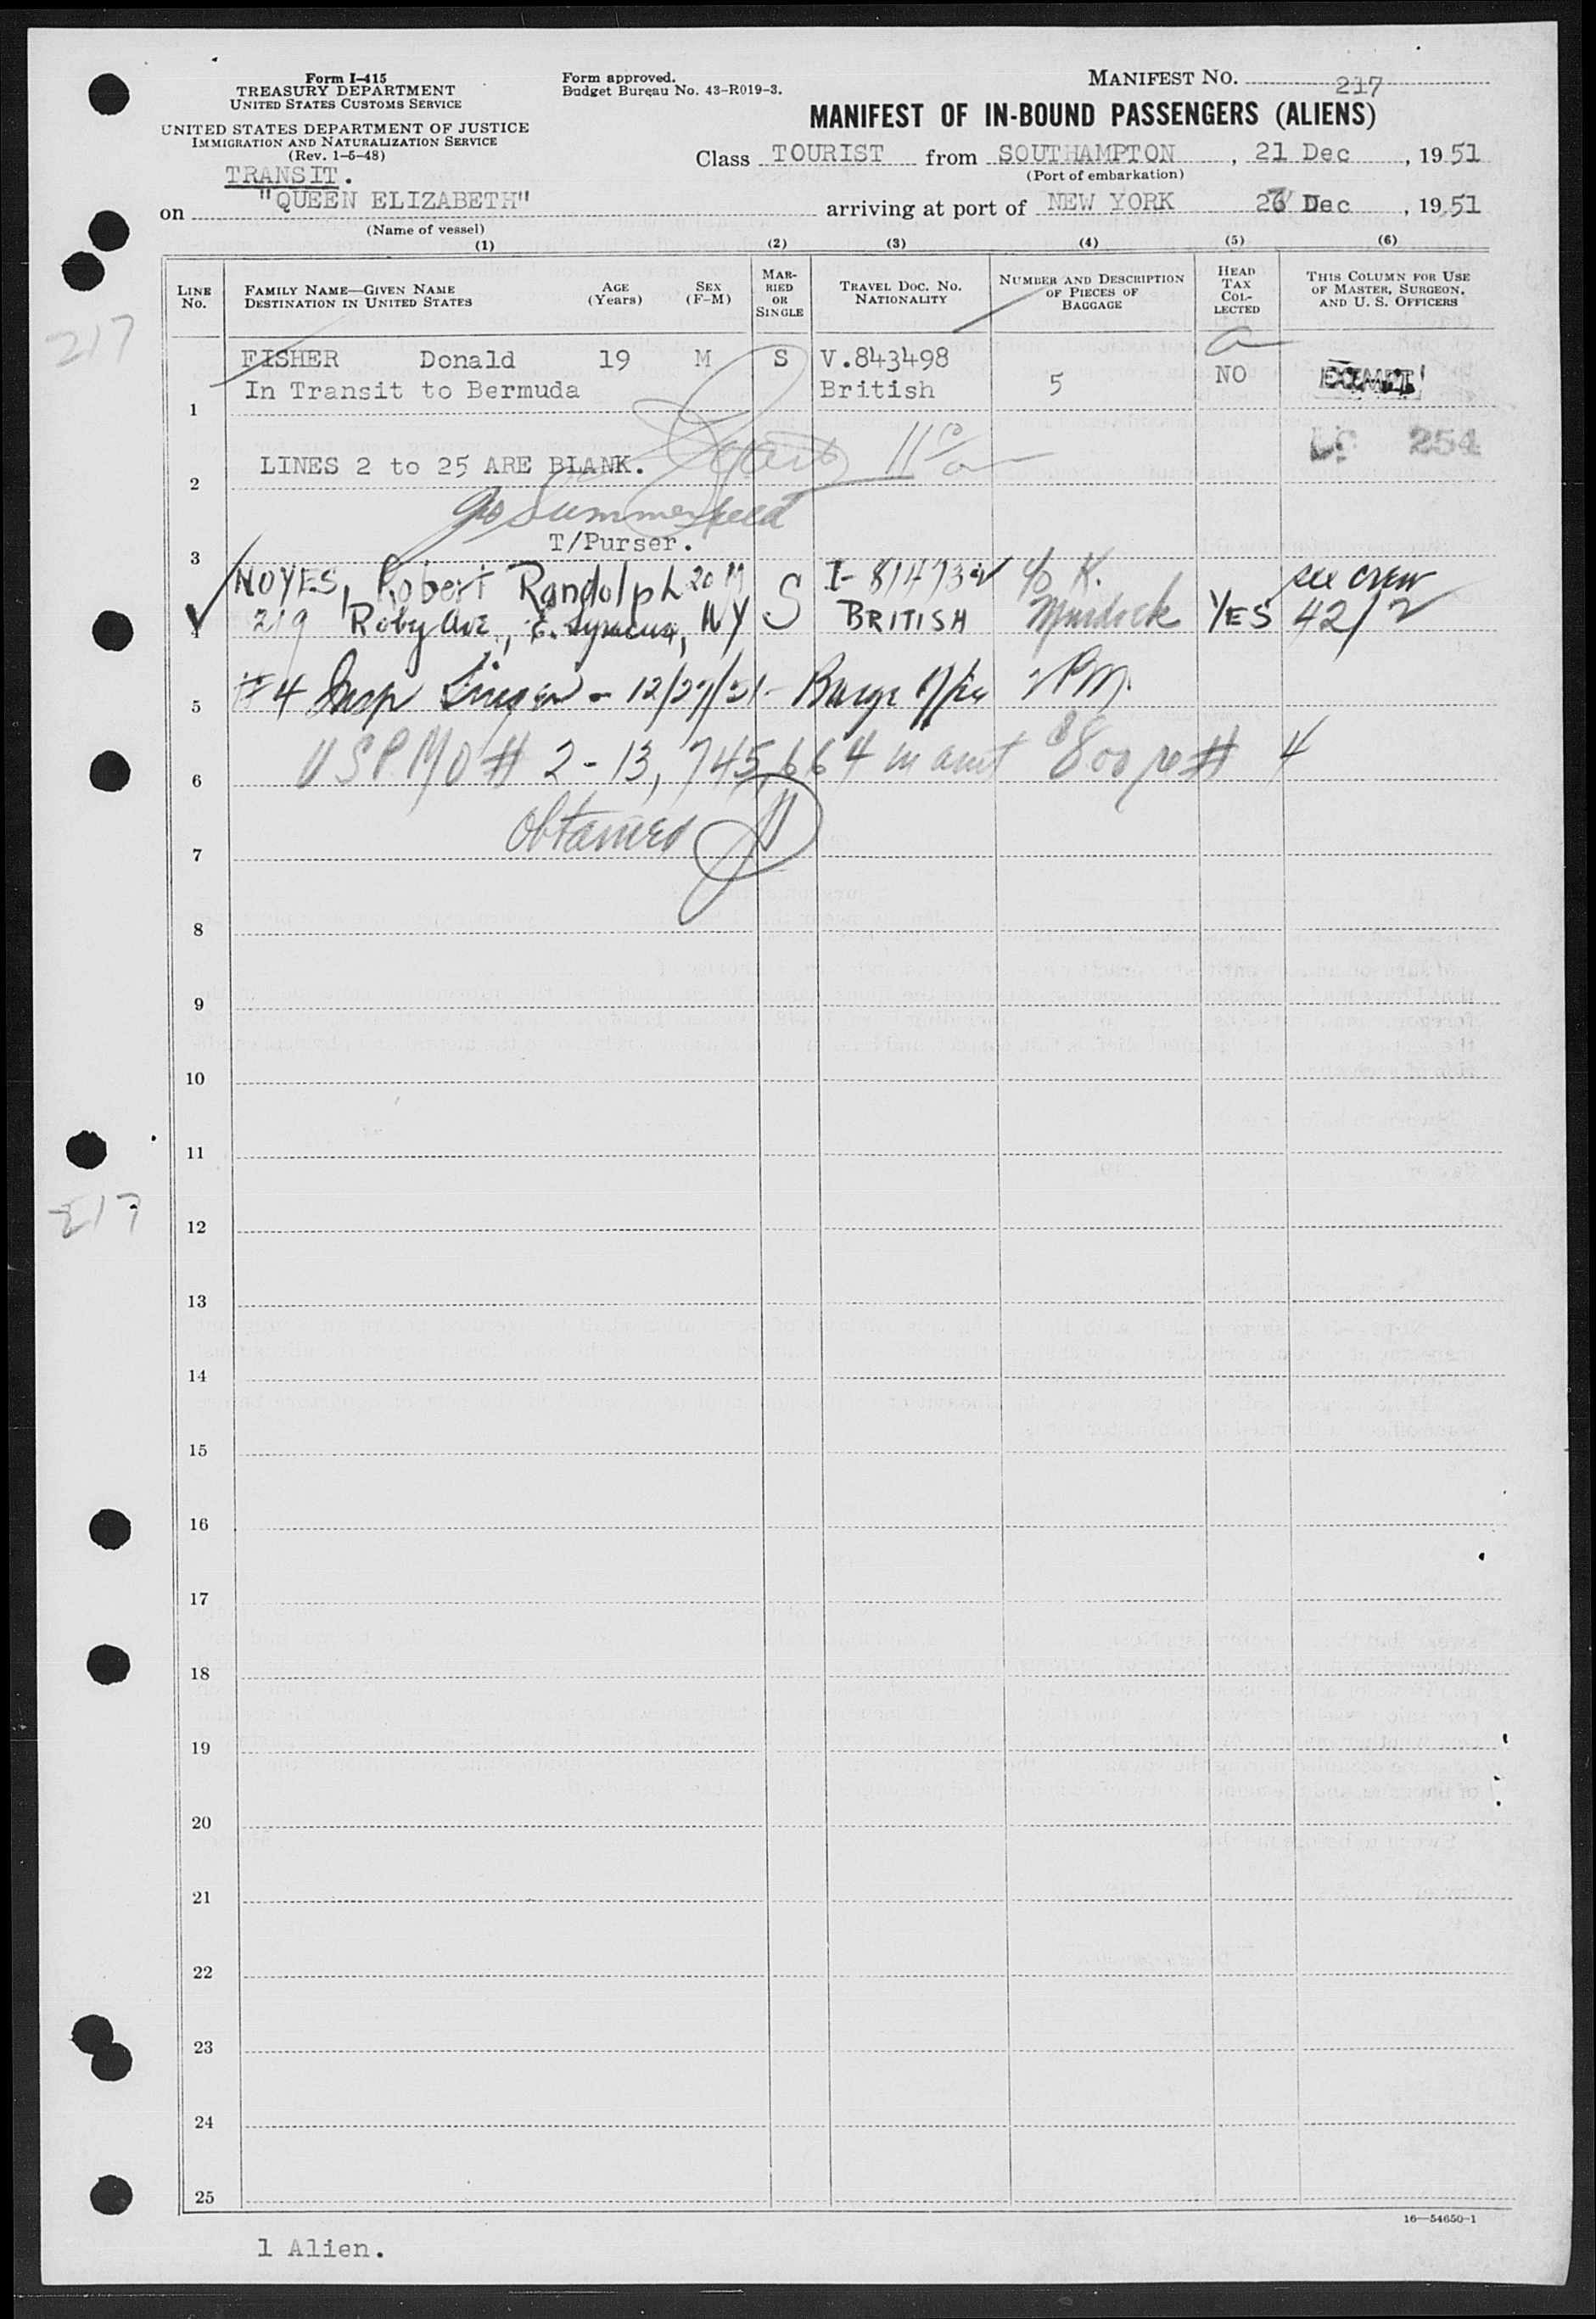 Form I-415
TREASURY DEPARTMENT
UNITED STATES CUSTOMS SERVICE
UNITED STATES DEPARTMENT OF JUSTICE
IMMIGRATION AND NATURALIZATION SERVICE
(Rev. 1-5-48)
Form approved.
Budget Bureau No. 43-R019-3.
MANIFEST NO. 217
MANIFEST OF IN-BOUND PASSENGERS (ALIENS)
Class TOURIST from SOUTHAMPTON, 21 Dec, 1951
(Port of embarkation)
TRANSIT.
on "QUEEN ELIZABETH" arriving at port of NEW YORK Dec, 1951
(Name of vessel)
(1) (2) (3) (4) (5) (6)
LINE No. FAMILY NAME—GIVEN NAME DESTINATION IN UNITED STATES AGE (Years) SEX (F-M) MARRIED OR SINGLE TRAVEL DOC. NO. NATIONALITY NUMBER AND DESCRIPTION OF PIECES OF BAGGAGE HEAD TAX COLLECTED THIS COLUMN FOR USE OF MASTER, SURGEON, AND U. S. OFFICERS
217
FISHER Donald 19 M S V.843498
1 In Transit to Bermuda British 5 NO EXEMPT
254
2 LINES 2 to 25 ARE BLANK.
Summerfeed
3 T/Purser.
NOYES, Robert Randolph 20 M S I- c/o K. see crew
4 219 Roby Ave., E. Syracuse, NY BRITISH Murdock YES 42/2
5 #4 Insp - 12/27/51 - Barge Office 2 PM.
6 USPMO # 2-13,745,664 in amt $8 00 re # 4
7 obtained
8
9
10
11
217
12
13
14
15
16
17
18
19
20
21
22
23
24
25
16—54650-1
1 Alien.